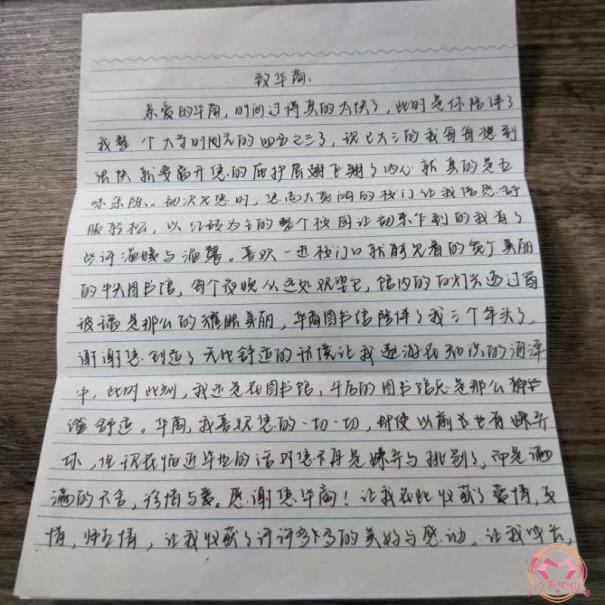 致华商.
亲爱的华商，时间过得真的太快了，此时是你陪伴了
我整个大学时光的四分之三了，现已大三的我每每想到
就要离开您的庇护展翅飞翔了内心就真的是五
味杂陈。初次见您时，您高大的校门让我倍感舒
服轻松，以红砖为主的整个校园让初来乍到的我有了
些许温暖与温馨。喜欢一进校门口就能见着的美丽
的图书馆，每个夜晚从远处观望它，馆内的白灯光透过
玻璃是那么的耀眼美丽，华商图书馆陪伴了我三个年头了，
谢谢您创造了无比舒适的环境让我遨游在知识的海洋
中，此时此刻，我还是在图书馆，午后的图书馆总是那么静
谧舒适。华商，我喜欢您的一切一切，即使以前也有嫌弃
，但现在临近毕业的话对您不再是嫌弃与挑剔了，而是满
满的不舍，珍惜与爱。感谢您华商！让我在此收获了爱情，友
情，师生情，让我收获了许许多多的美好与感动，让我